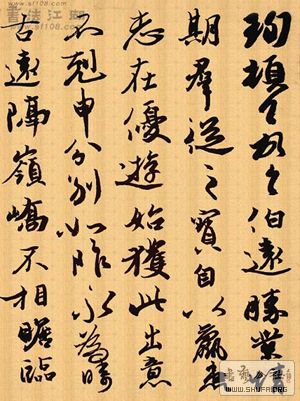 書法江湖
www.sf108.com
珣頓首頓首伯遠勝業情
期羣從之寶自以羸患
志在優遊始獲此出意
不剋申分別如昨永為疇
古遠隔嶺嶠不相瞻臨
WWW.SHUFA.ORG